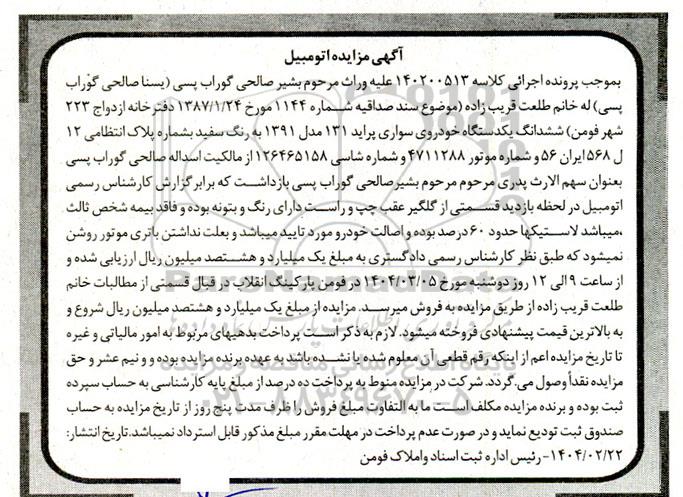 آگهی مزایده اتومبیل
بموجب پرونده اجرائی کلاسه ۱۴۰۲۰۰۵۱۳ علیه وراث مرحوم بشیر صالحی گوراب پسی (یسنا صالحی گوراب
پسی) له خانم طلعت قریب زاده (موضوع سند صداقیه شماره ۱۱۴۴ مورخ ۱۳۸۷/۱/۲۴ دفترخانه ازدواج ۲۲۳
شهر فومن) ششدانگ یکدستگاه خودروی سواری پراید ۱۳۱ مدل ۱۳۹۱ به رنگ سفید بشماره پلاک انتظامی ۱۲
ل ۵۶۸ ایران ۵۶ و شماره موتور ۴۷۱۱۲۸۸ و شماره شاسی ۱۲۶۴۶۵۱۵۸ از مالکیت اسداله صالحی گوراب پسی
بعنوان سهم الارث پدری مرحوم مرحوم بشیر صالحی گوراب پسی بازداشت که برابر گزارش کارشناس رسمی
اتومبیل در لحظه بازدید قسمتی از گلگیر عقب چپ و راست دارای رنگ و بتونه بوده و فاقد بیمه شخص ثالث
،میباشد لاستیکها حدود ۶۰ درصد بوده و اصالت خودرو مورد تایید میباشد و بعلت نداشتن باتری موتور روشن
نمیشود که طبق نظر کارشناس رسمی دادگستری به مبلغ یک میلیارد و هشتصد میلیون ریال ارزیابی شده و
از ساعت ۹ الی ۱۲ روز دوشنبه مورخ ۱۴۰۴/۰۳/۰۵ در فومن پارکینگ انقلاب در قبال قسمتی از مطالبات خانم
طلعت قریب زاده از طریق مزایده به فروش میرسد. مزایده از مبلغ یک میلیارد و هشتصد میلیون ریال شروع و
به بالاترین قیمت پیشنهادی فروخته میشود. لازم به ذکر است پرداخت بدهیهای مربوط به امور مالیاتی و غیره
تا تاریخ مزایده اعم از اینکه رقم قطعی آن معلوم شده یا نشده باشد به عهده برنده مزایده بوده و و نیم عشر و حق
مزایده نقداً وصول می.گردد. شرکت در مزایده منوط به پرداخت ده درصد از مبلغ پایه کارشناسی به حساب سپرده
ثبت بوده و برنده مزایده مکلف است ما به التفاوت مبلغ فروش را ظرف مدت پنج روز از تاریخ مزایده به حساب
صندوق ثبت تودیع نماید و در صورت عدم پرداخت در مهلت مقرر مبلغ مذکور قابل استرداد نمیباشد. تاریخ انتشار:
۱۴۰۴/۰۲/۲۲- رئیس اداره ثبت اسناد و املاک فومن
ParsNamadData
۰۲۱-۸۸۳۴۹۶۷۰-۵